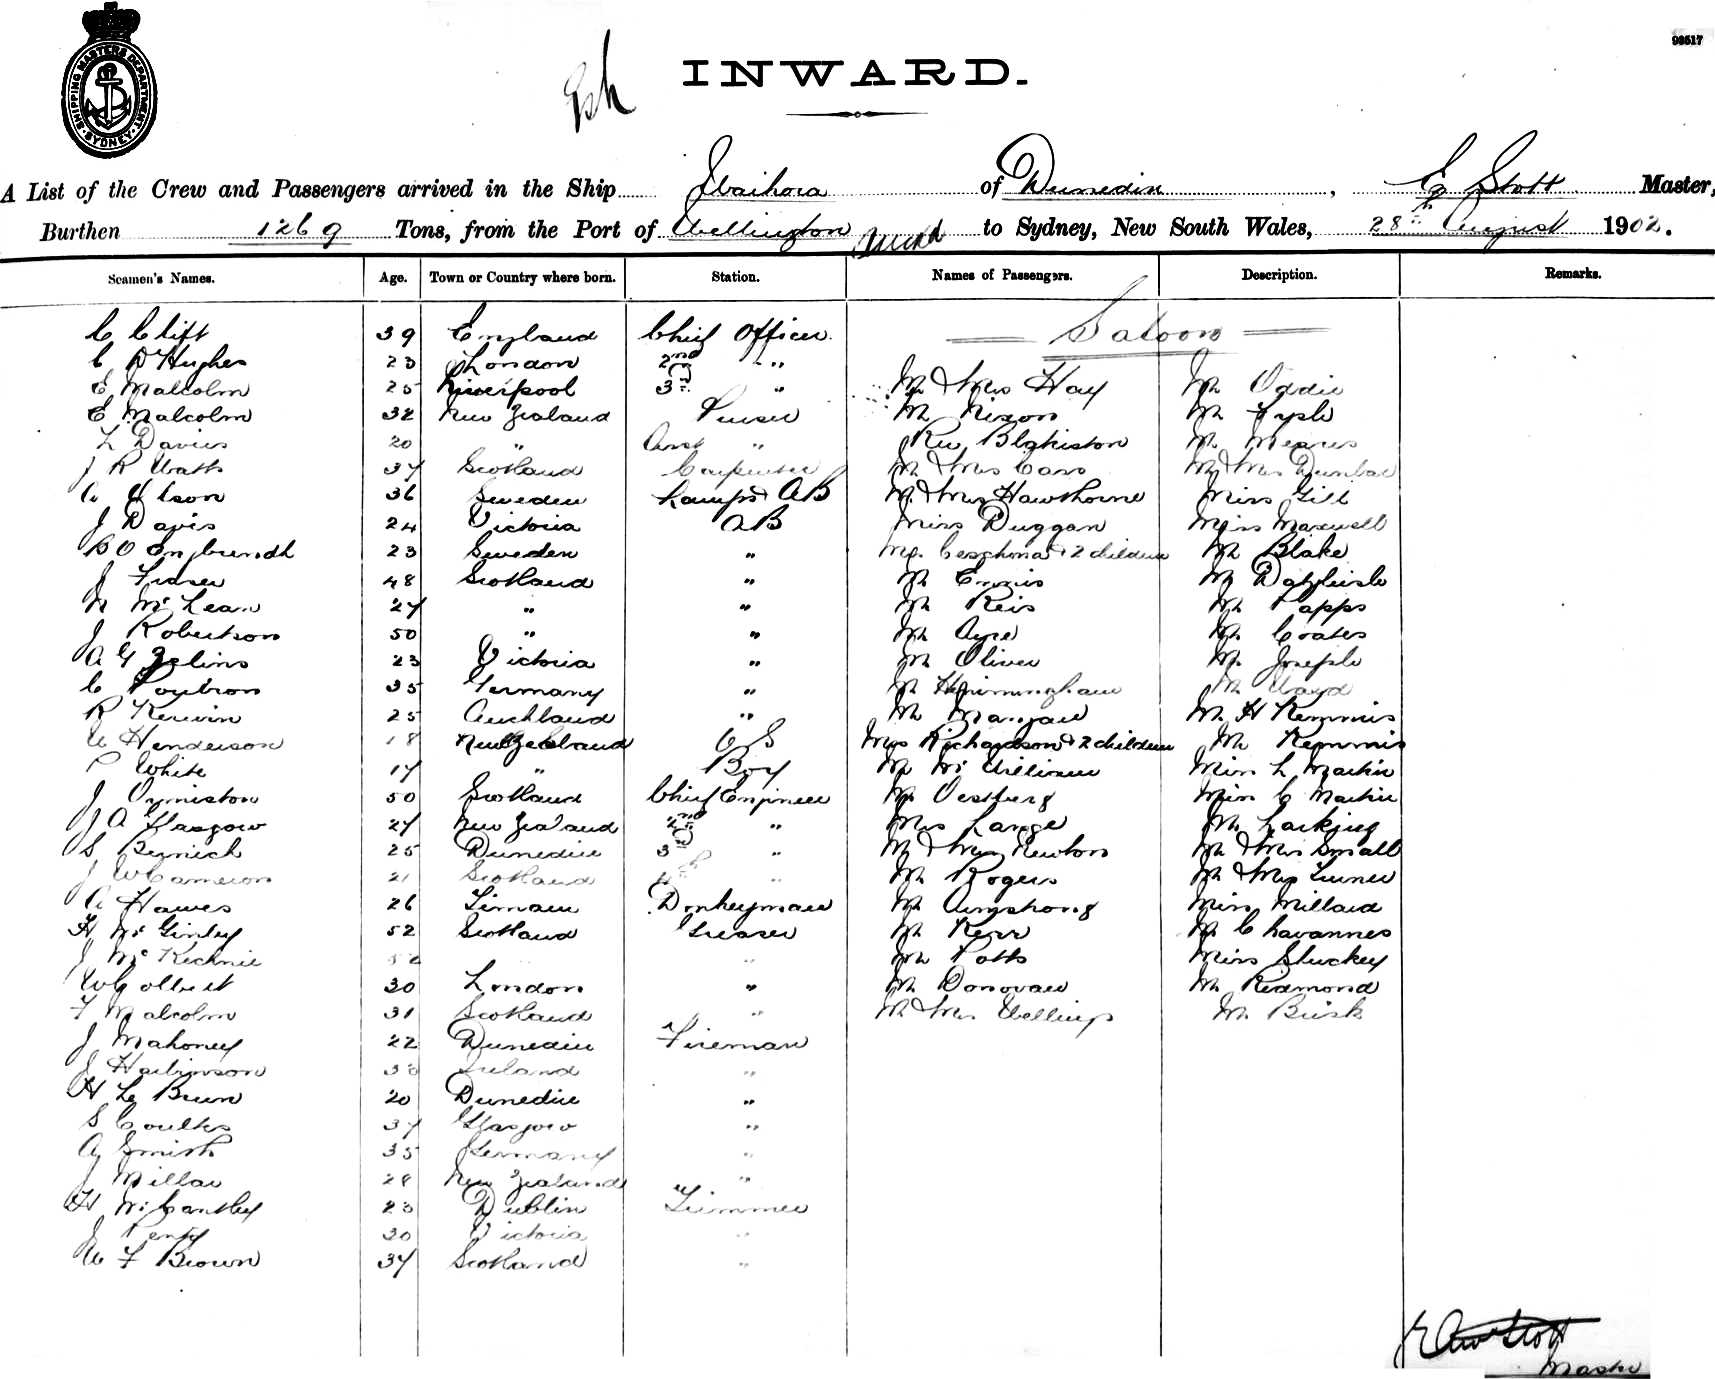 SHIPPING MASTERS DEPARTMENT SYDNEY
98517
INWARD.
A List of the Crew and Passengers arrived in the Ship Waihora of Dunedin, Stott Master,
Burthen 1269 Tons, from the Port of Wellington to Sydney, New South Wales, 28th August 1902.
Seamen's Names. Age. Town or Country where born. Station. Names of Passengers. Description. Remarks.
Saloon
C Clift 39 England Chief Officer
C D Hughes 23 London 2nd "
E Malcolm 25 Liverpool 3rd " Mr & Mrs Hay Mr Oddie
E Malcolm 32 New Zealand Purser Mr Nixon Mr Fysh
L Davies 20 " Asst " Rev Blakiston Mr Meares
J R Watts 37 Scotland Carpenter Mr & Mrs Cass Mr & Mrs Dunbar
A Olson 36 Sweden Lamps & AB Mr & Mrs Hawthorne Miss Gill
J Davis 24 Victoria AB Miss Duggan Miss Maxwell
23 Sweden " & 2 children Mr Blake
J Fraser 48 Scotland " Mr Ennis Mr Dalgleish
N McLean 27 " " Mr Reis Mr Papps
J Robertson 50 " " Mr Ayre Mr Coates
A G 23 Victoria " Mr Oliver Mr Joseph
C 35 Germany " Mr Mr Lloyd
R Kerwin 25 Auckland " Mr Mr H Kemmis
Henderson 18 New Zealand OS Mrs Richardson & 2 children Mr Kemmis
P White 17 " Boy Mr McWilliam Miss L Martin
J Ormiston 50 Scotland Chief Engineer Mr Oestberg Miss C Martin
J A Glasgow 27 New Zealand 2nd " Mrs Lange Mr Larking
S 25 Dunedin 3rd " Mr & Mrs Newton Mr & Mrs Small
J W Cameron 21 Scotland 4th " Mr Rogers Mr & Mrs Turner
A Hawes 26 Timaru Donkeyman Mr Armstrong Miss Millard
H McGinley 52 Scotland Greaser Mr Kerr Mr Chavannes
J McKechnie " Mr Potts Miss Stuckey
W Colbert 30 London " Mr Donovan Mr Redmond
F Malcolm 31 Scotland " Mr & Mrs Wellings Mr Busk
J Mahoney 22 Dunedin Fireman
J 38 Ireland "
H Le Brun 20 Dunedin "
S Coulter 37 Glasgow "
A Smith 35 Germany "
J Millar 28 New Zealand "
H McCantley 23 Dublin Trimmer
J 30 Victoria "
W F Brown 37 Scotland "
Stott
Master